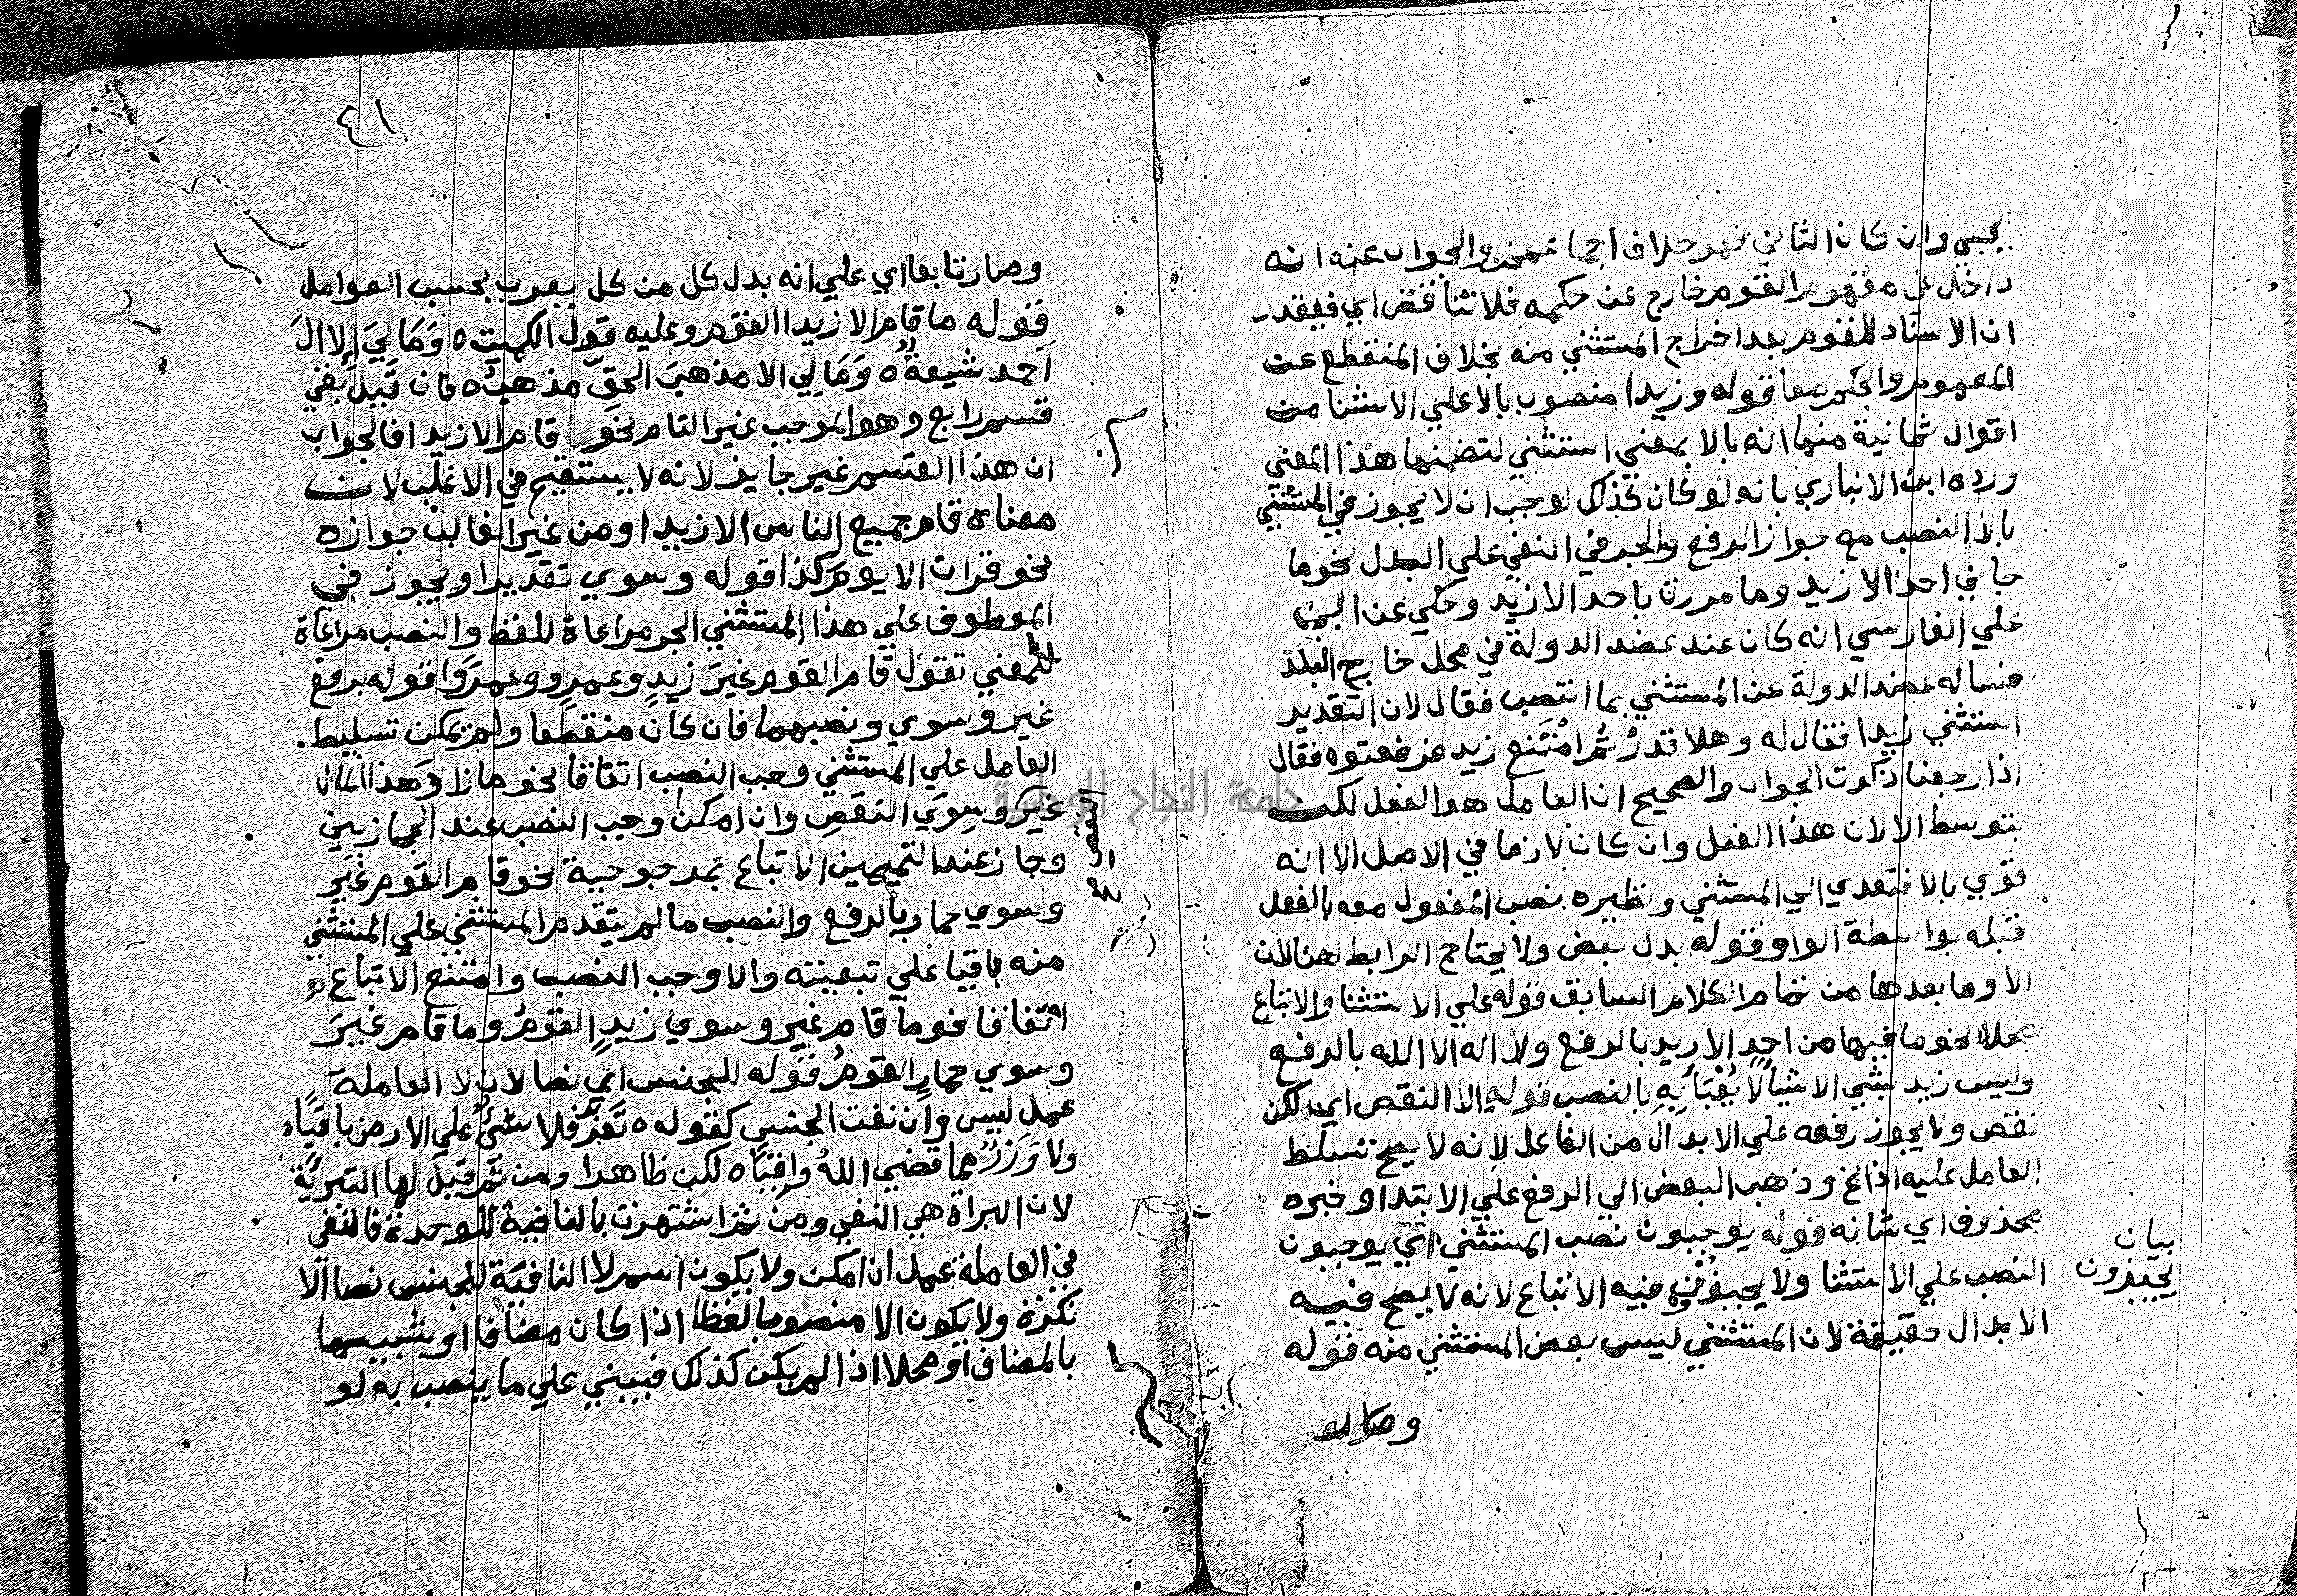 يجيى وان كان الثاني فهو خلاف اجماعهم والجواب عنه انه
داخل في مفهوم القوم خارج عن حكمه فلا تناقض اي فيقدر
ان الاسناد للقوم بعد اخراج المستثني منه بخلاف المنقطع عن
المفهوم والحكم معا قوله وزيدا منصوب بالا علي الاستثنا من
اقوال ثمانية منها انه بالا بمعني استثني لتضمنها هذا المعني
ورده ابن الانباري بانه لو كان كذلك لوجب ان لا يجوز في المستثني
بالا النصب مع جواز الرفع والجر في النفي علي البدل نحو ما
جاني احد الا زيد وما مررت باحد الا زيد وحكي عن ابي
علي الفارسي انه كان عند عضد الدولة في محل خارج البلد
فساله عضد الدولة عن المستثني بما انتصب فقال لان التقدير
استثني زيدا فقال له وهلا قدرت امتنع زيد فرفعتوه فقال
اذا رجعنا ذكرت الجواب والصحيح ان العامل هو الفعل لكن
بتوسط الا لان هذا الفعل وان كان لازما في الاصل الا انه
قوي بالا فتعدي الي المستثني ونظيره نصب المفعول معه بالفعل
قبله بواسطة الواو قوله بدل بعض ولا يحتاج الرابط هنا لان
الا وما بعدها من تمام الكلام السابق قوله علي الاستثنا والاتباع
محلا نحو ما فيها من احدٍ الا زيد بالرفع ولا اله الا الله بالرفع
وليس زيد بشي الا شيأ لا يُعْبَأُ بِهِ بالنصب قوله الا النقص اي لكن
نقص ولا يجوز رفعه علي الابدال من الفاعل لانه لا يصح تسلط
العامل عليه اذ الخ وذهب البعض الي الرفع علي الابتدا وخبره
محذوف اي شانه قوله يوجبون نصب المستثني اي يوجبون
النصب علي الاستثنا ولا يجيزون فيه الاتباع لانه لا يصح فيه
الابدال حقيقة لان المستثني ليس بعض المستثني منه قوله
بيان
يجيزون
وصار
٤١
وصار تابعا اي علي انه بدل كل من كل يعرب بحسب العوامل
قوله ما قام الا زيدا القوم وعليه قول الكميت ه وَمَا لِيَ إلا الَ
احمد شيعةٌ ه وَمَا لِي الا مذهبَ الحقّ مذهبُ ه فان قيل بقي
قسم رابع وهو الموجب غير التام نحو قام الا زيدا فالجواب
ان هذا القسم غير جايز لانه لا يستقيم في الاغلب لان
معناه قام جميع الناس الا زيدا ومن غير الغالب جوازه
نحو قرات الا يومَ كذا قوله وسوي تقديرا ويجوز في
المعطوف علي هذا المستثني الجر مراعاة للفظ والنصب مراعاة
للمعني تقول قام القوم غيرَ زيدٍ وعمرٍو وعمرًوا قوله برفع
غير وسوي ونصبهما فان كان منقطعا ولم يمكن تسليط
العامل علي المستثني وجب النصب اتفاقا نحو ما زاد هذا المال
غيرَ وسِوَي النقصِ وان امكن وجب النصب عند الحجازيين
وجاز عند التميميين الاتباع بمرجوحية نحو قام القوم غير
وسوي حمار بالرفع والنصب ما لم يتقدم المستثني علي المستثني
منه باقيا علي تبعيته والا وجب النصب وامتنع الاتباع
اتفاقا نحو ما قام غير وسوي زيدٍ القومُ وما قام غيرَ
وسوي حمارٍ القومُ قوله للجنس اي نصا لان لا العاملة
عمل ليس وان نفت الجنس كقوله ه تَعَزَّ فلا شئٌ علي الارض باقيًا ه
ولا وَزَرٌ مما قضي اللهُ واقيًا ه لكن ظاهرا ومن ثم قيل لها التبرئة
لان البراة هي النفي ومن ثم اشتهرت بالنافية للوحدة فالنفي
في العاملة عمل ان امكن ولا يكون اسم لا النافية للجنس نصا الا
نكرة ولا يكون الا منصوبا لفظا اذا كان مضافا او شبيها
بالمضاف او محلا اذا لم يكن كذلك فيبني علي ما ينصب به لو
جامعة النجاح الوطنية